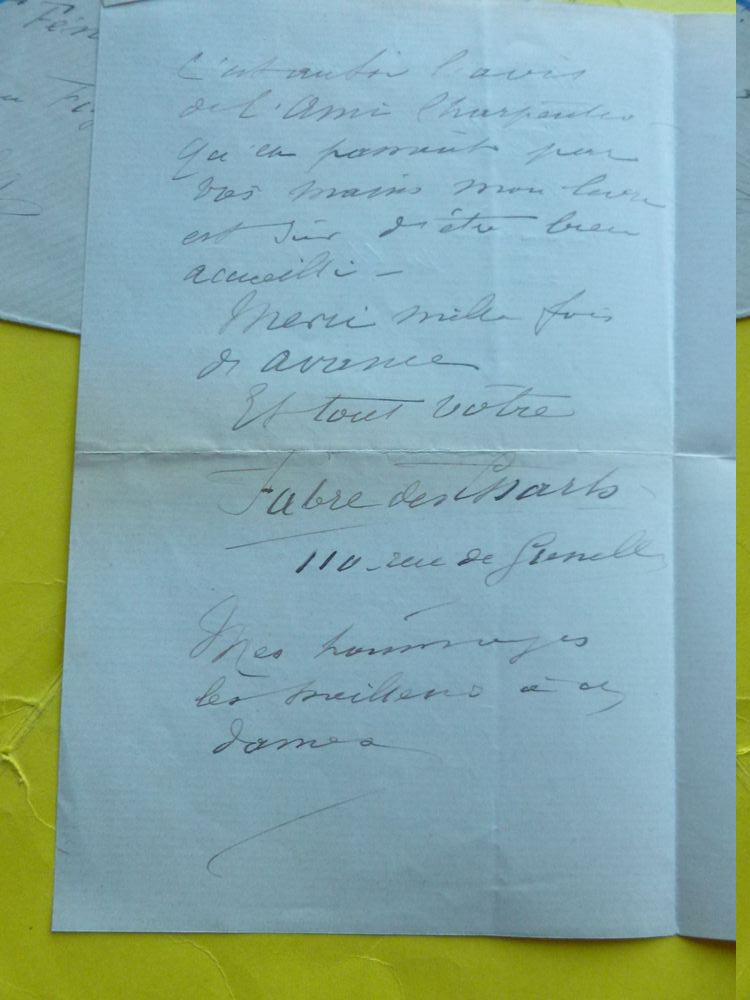 C'est aussi l'avis
de l'Ami Charpentier
qu'en passant par
vos mains mon livre
est sûr d'être bien
accueilli -
Merci mille fois
d'avance
Et tout votre
Fabre des Essarts
110 rue de Grenelle
Mes hommages
les meilleurs à ces
dames